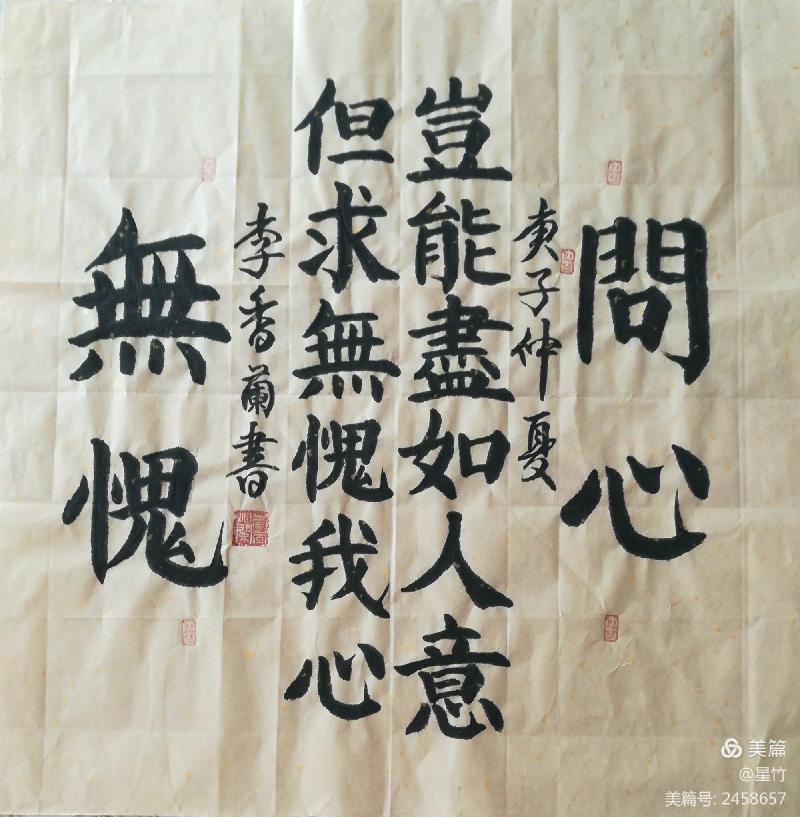 問心
庚子仲夏
豈能盡如人意
但求無愧我心
李香蘭書
無愧
美篇
@星竹
美篇号: 2458657